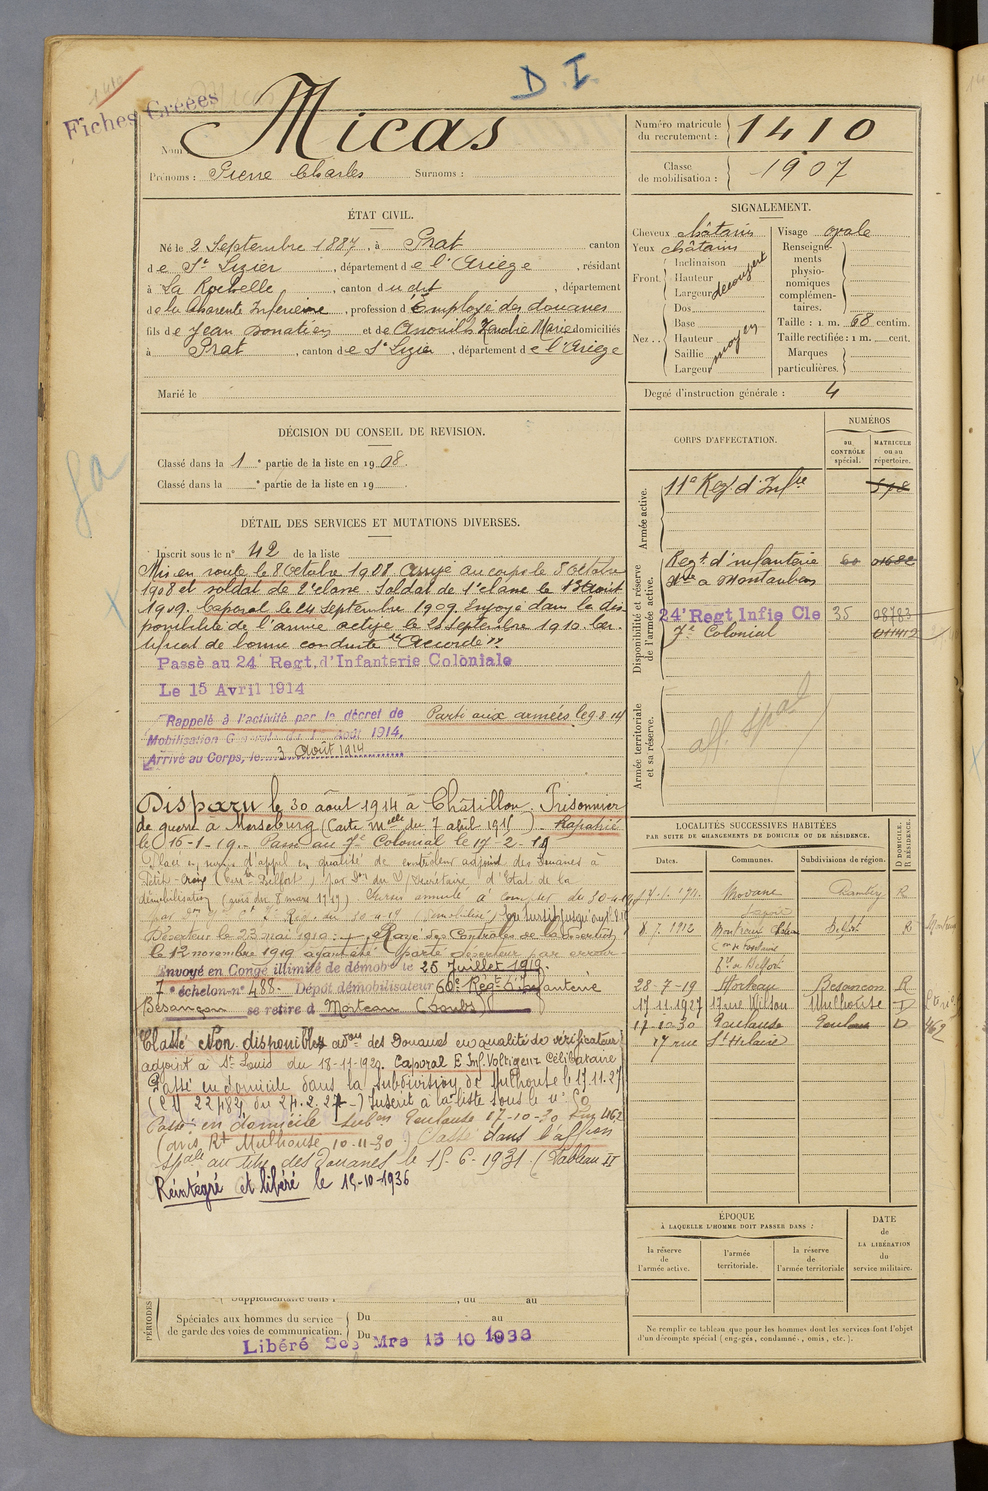 D. I.
1410
Fiches Créées
Nom Micas
Prénoms : Pierre Charles Surnoms :
Numéro matricule du recrutement : 1410
Classe de mobilisation : 1907
ÉTAT CIVIL.
Né le 2 Septembre 1887, à Prat canton
de St Lizier, département de l'Ariège, résidant
à La Rochelle, canton du dit, département
de la Charente Inférieure, profession d'Employé des douanes
fils de Jean Donatien et de Anouilh Marie domiciliés
à Prat, canton de St Lizier, département de l'Ariège
Marié le
SIGNALEMENT.
Cheveux châtains
Yeux châtains
Front. Inclinaison
Hauteur
Largeur découvert
Nez .. Dos
Base
Hauteur
Saillie moyen
Largeur
Visage ovale
Renseignements physionomiques complémentaires.
Taille : 1 m. 68 centim.
Taille rectifiée : 1 m. cent.
Marques particulières.
Degré d'instruction générale : 4
DÉCISION DU CONSEIL DE REVISION.
Classé dans la 1e partie de la liste en 1908.
Classé dans la e partie de la liste en 19
DÉTAIL DES SERVICES ET MUTATIONS DIVERSES.
Inscrit sous le n° 42 de la liste
Mis en route le 8 Octobre 1908. Arrivé au corps le 8 Octobre
1908 et soldat de 2e classe. Soldat de 1e classe le 1er Août
1909. Caporal le 24 Septembre 1909. Envoyé dans la dis
ponibilité de l'armée active le 25 Septembre 1910. Cer
tificat de bonne conduite Accordé
Passé au 24e Regt. d'Infanterie Coloniale
Le 15 Avril 1914
Rappelé à l'activité par le décret de Parti aux armées le 9.8.14
Mobilisation Générale du 1er Août 1914.
Arrivé au Corps, le 3 Août 1914
Disparu le 30 août 1914 à Châtillon. Prisonnier
de guerre à Merseburg (Carte melle du 7 abril 1915). Rapatrié
le 16-1-19. Passé au 7e Colonial le 17-2-19
Placé en sursis d'appel en qualité de contrôleur adjoint des Douanes à
Petit-Croix (Terre Belfort) par Don du S/Secrétaire d'Etat de la
démobilisation (avis du 8 mars 1919) Sursis annulé à compter du 30-4-19
Déserteur le 23 mai 1919 : Rayé des Contrôles de la désertion
le 12 novembre 1919 ayant été porté déserteur par erreur
Envoyé en Congé illimité de démob. le 25 Juillet 1919.
7e échelon n° 488. Dépôt démobilisateur 60e Régt d'Infanterie
Besançon se retire à Morteau (Doubs)
Classé Non disponible adon des Douanes en qualité de vérificateur
adjoint à St Louis du 18-11-1920. Caporal E Inf. Voltigeur Célibataire
Passé en domicile dans la subdivision de Mulhouse le 17.11.27
(C M 22484 du 24.2.27) Inscrit à la liste sous le n° 50
Passé en domicile subon Toulouse 17-10-30 Rng 462
(avis Rt Mulhouse 10-11-30) Classé dans l'affon
spale au titre des Douanes le 15-6-1931. (Tableau II
Réintégré et libéré le 15-10-1936
CORPS D'AFFECTATION.
NUMÉROS
au CONTRÔLE spécial.
MATRICULE ou au répertoire.
Armée active.
11e Regt d'Infie 578
Disponibilité et réserve de l'armée active.
Regt d'infanterie 60
à Montauban
24e Regt Infie Cle 35 08783
7e Colonial
Armée territoriale et sa réserve.
aff. spale
LOCALITÉS SUCCESSIVES HABITÉES
PAR SUITE DE CHANGEMENTS DE DOMICILE OU DE RÉSIDENCE.
D DOMICILE. R RÉSIDENCE.
Dates. Communes. Subdivisions de région.
Modane Chambéry R
Savoie
8.7.1912 Montreux Château Belfort R
Tre de Belfort
28-7-19 Morteau Besançon R
17.11.1927 17 rue Wilson Mulhouse D
17-10-30 Toulouse Toulouse D 462
27 rue St Hilaire
ÉPOQUE
À LAQUELLE L'HOMME DOIT PASSER DANS :
la réserve de l'armée active.
l'armée territoriale.
la réserve de l'armée territoriale
DATE de LA LIBÉRATION du service militaire.
Ne remplir ce tableau que pour les hommes dont les services font l'objet
d'un décompte spécial (engagés, condamnés, omis, etc.).
PÉRIODES
Supplémentaire dans l , du au
Spéciales aux hommes du service Du au
de garde des voies de communication. Du
Libéré Ses Mre 15 10 1936